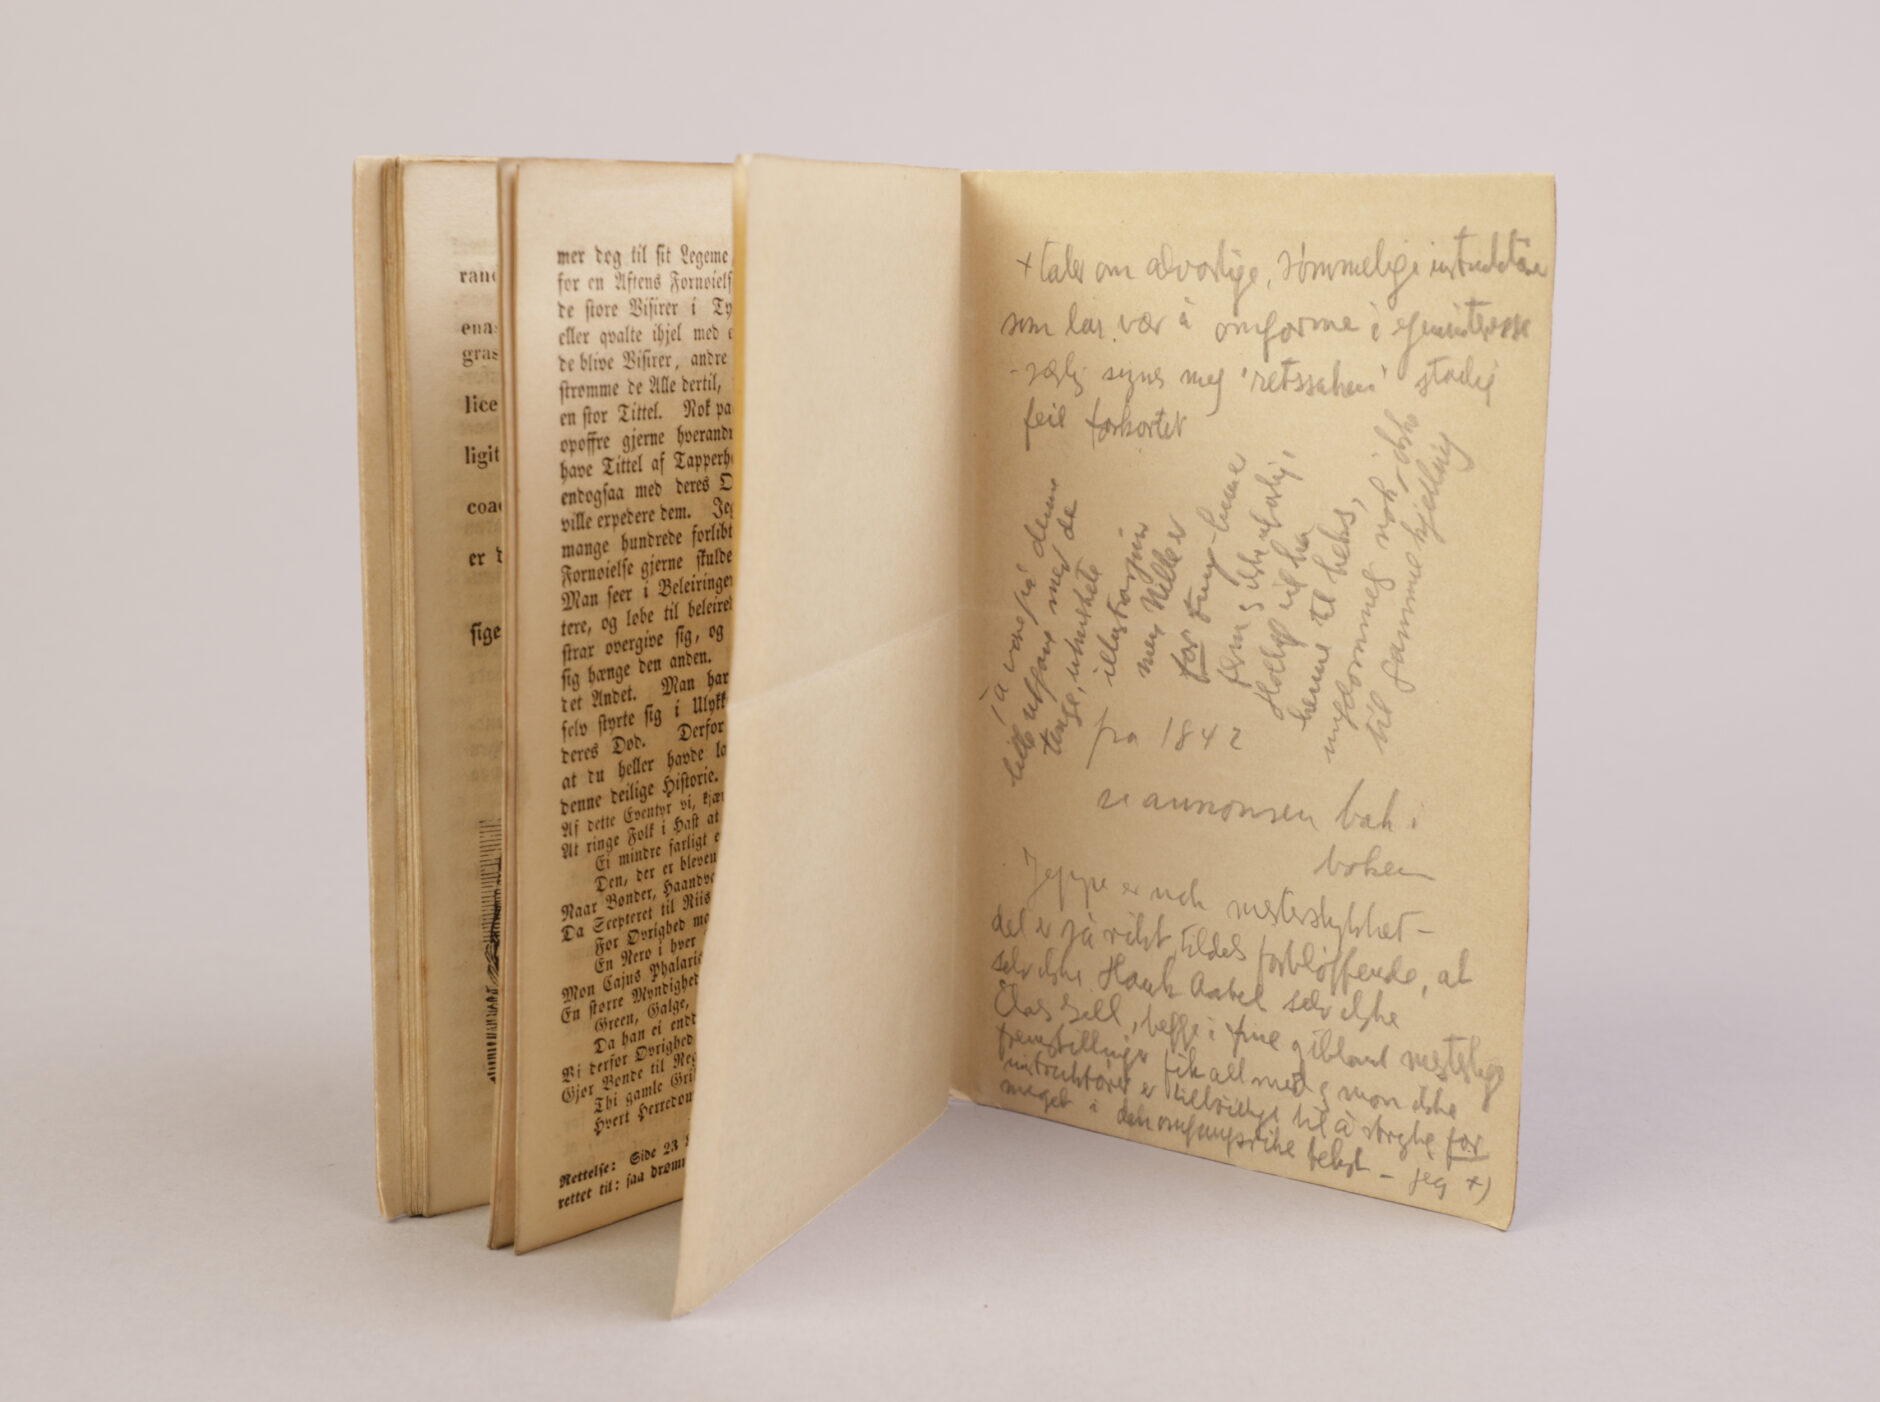 rand
ena
gras
lice
ligit
coa
er d
sige
mer dog til sit Legeme
for en Aftens Fornøiels
de store Visirer i Ty
eller qvalte ihjel med
de blive Visirer, andre
strømme de Alle dertil,
en stor Tittel. Nok pa
opoffre gjerne hverandr
have Tittel af Tapperh
endogsaa med deres
ville expedere dem. Jeg
mange hundrede forlibt
Fornøielse gjerne skulde
Man seer i Beleiringer
tere, og løbe til beleire
strax overgive sig, og
sig hænge den anden.
det Andet. Man har
selv styrte sig i Ulykk
deres Død. Derfor
at du heller havde la
denne deilige Historie.
Af dette Eventyr vi, kjæ
At ringe Folk i Hast at
Ei mindre farligt e
Den, der er bleven
Naar Bønder, Haandv
Da Scepteret til Riis
For Øvrighed ma
En Nero i hver
Mon Cajus Phalaris
En større Myndighed
Green, Galge,
Da han ei endd
Vi derfor Øvrighed
Gjør Bonde til Reg
Thi gamle Gri
Hvert Herredøm
Rettelse: Side 23
rettet til: saa drømm
+ taler om alvorlige, sømmelige instruktører
som lar vær å omforme i egeninteresse
- særlig synes meg 'retssaken' stadig
feil forkortet
å være på denne
litt utfør med de
illustrasjon
men Nille er
for tung
Holberg vil ha
henne til heks,
til samme kjelling
fra 1842
se annonsen bak i
boken
Jeppe er nok mesterstykket –
det er så rikt, tildels forbløffende, at
selv ikke Hauk Aabel selv ikke
begge i fine og iblant mesterlige
fremstillinger fik alt med og mon ikke
instruktører er tilbøielige til å stryke for
meget i den omfangsrike tekst – jeg +)